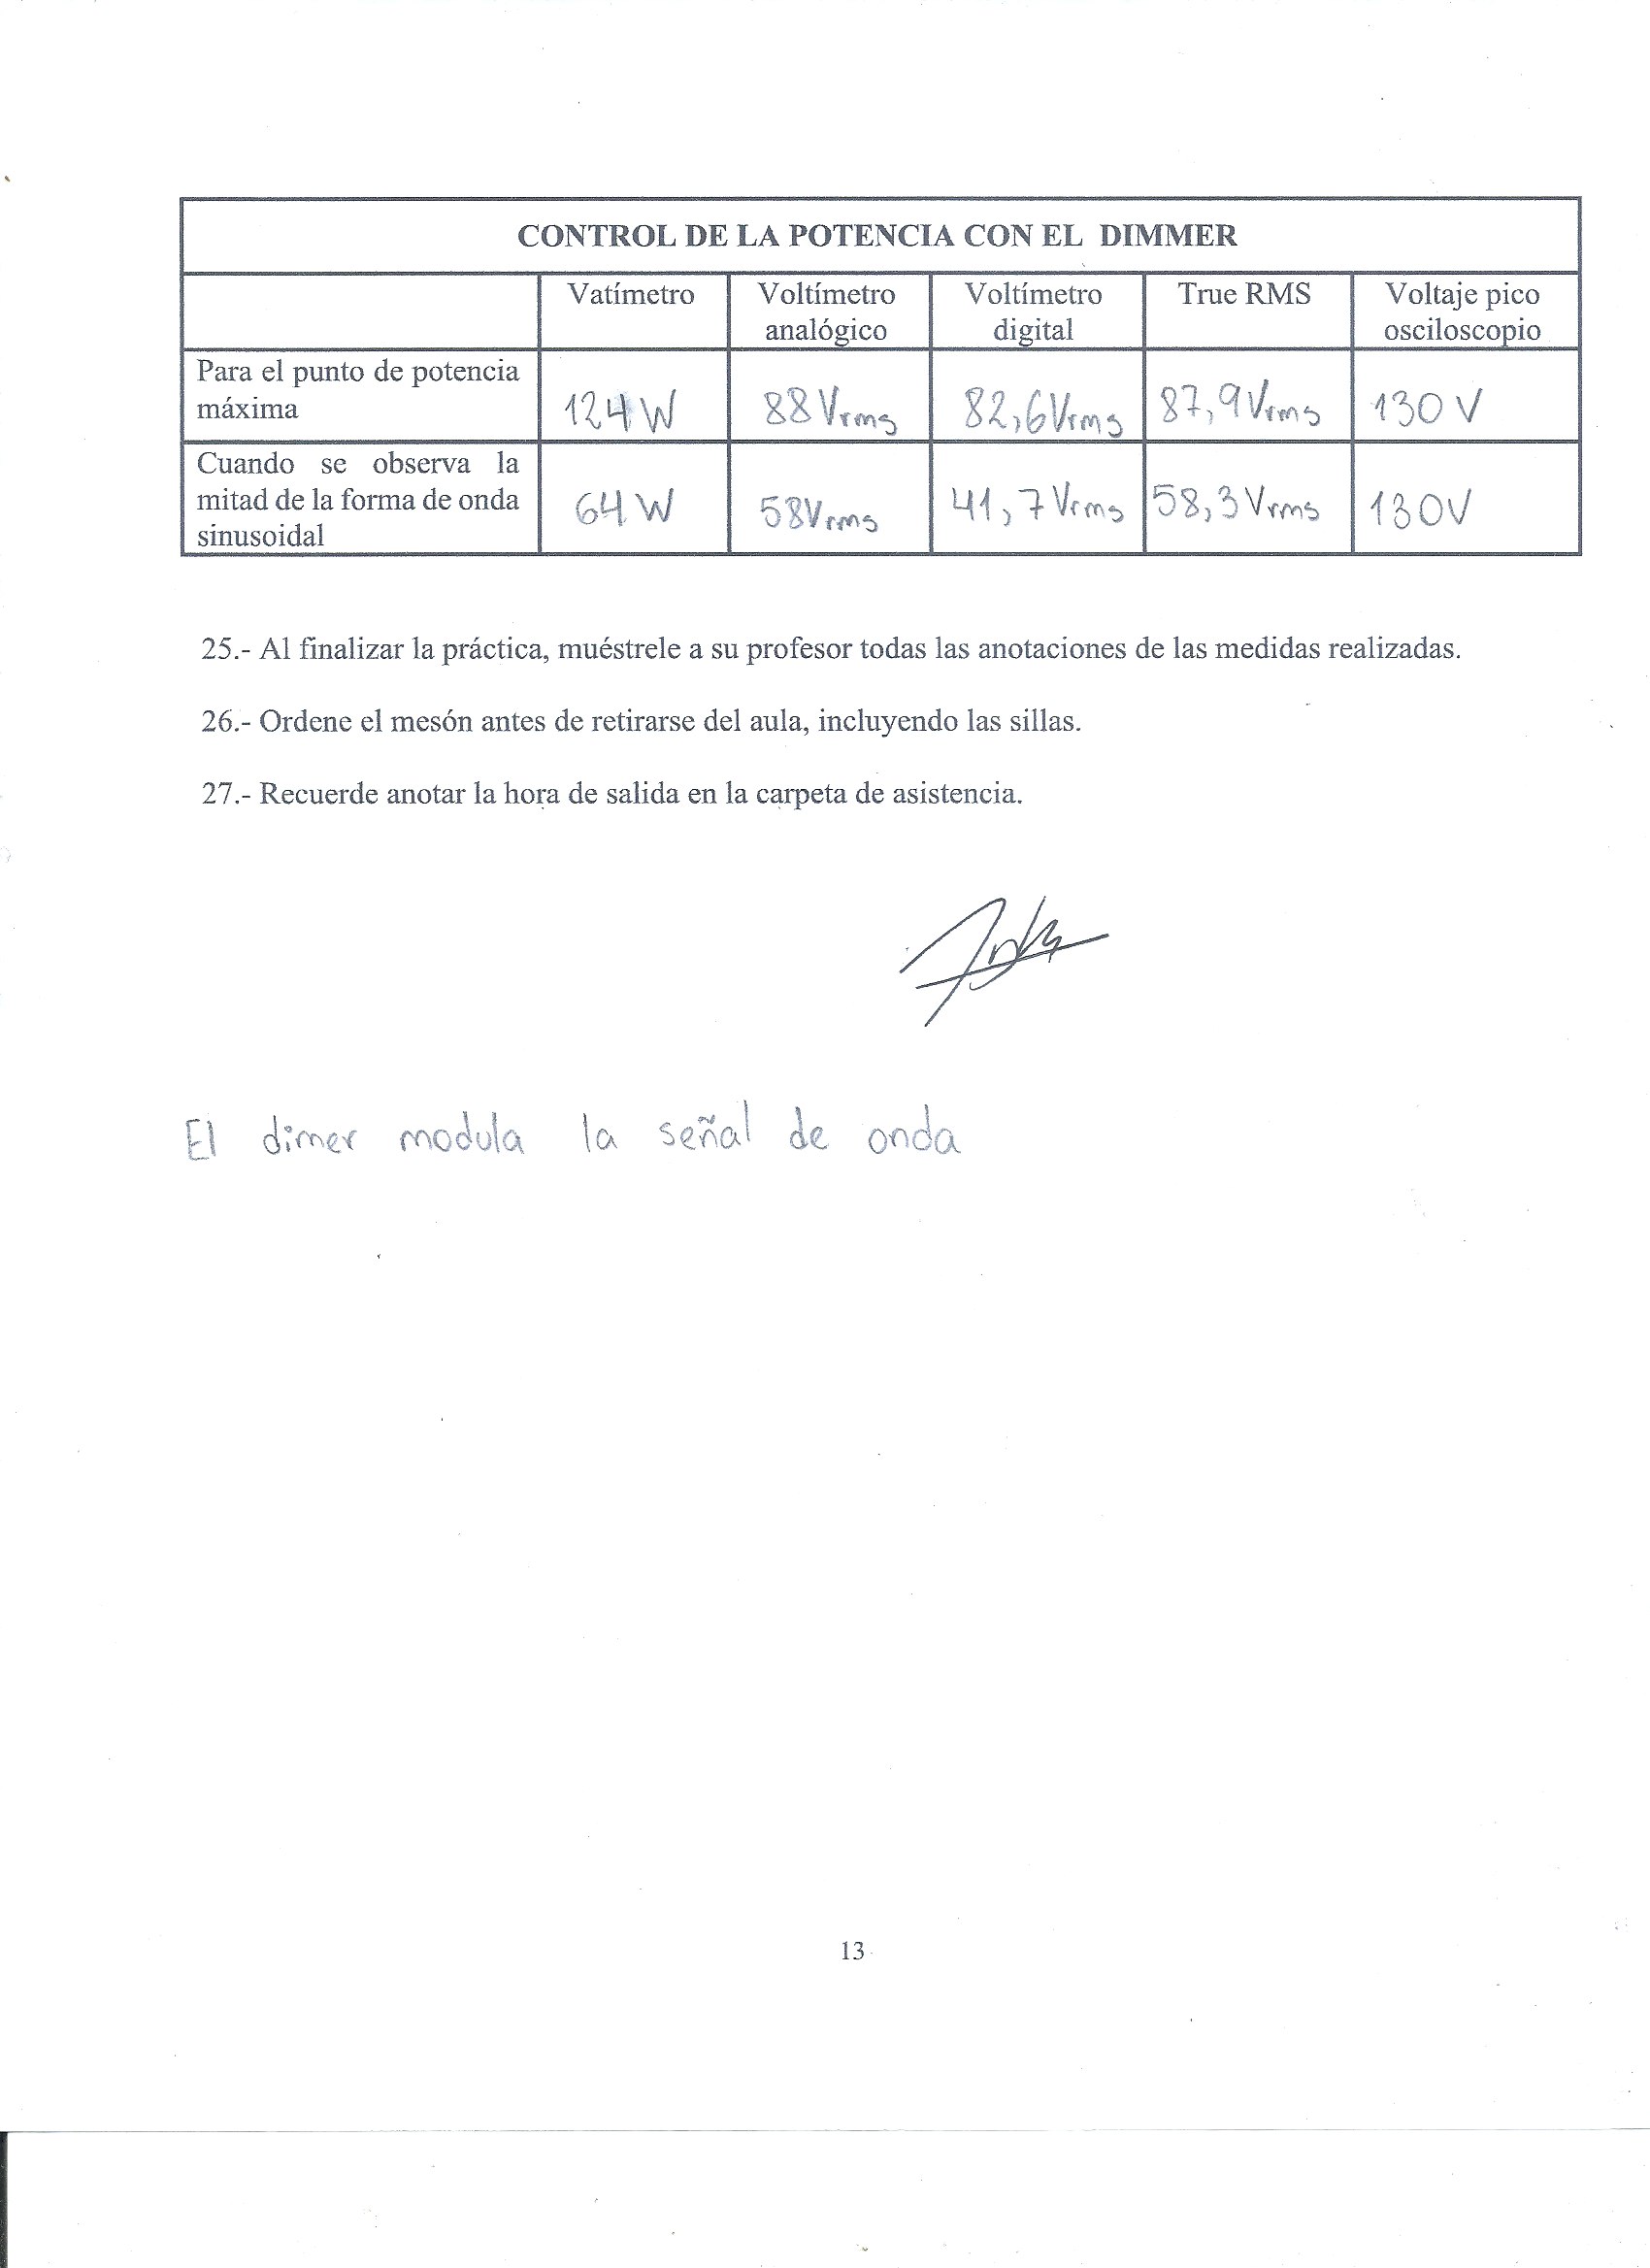 CONTROL DE LA POTENCIA CON EL DIMMER
Vatímetro Voltímetro analógico Voltímetro digital True RMS Voltaje pico osciloscopio
Para el punto de potencia máxima 124 W 88 Vrms 82,6 Vrms 87,9 Vrms 130 V
Cuando se observa la mitad de la forma de onda sinusoidal 64 W 58 Vrms 41,7 Vrms 58,3 Vrms 130 V
25.- Al finalizar la práctica, muéstrele a su profesor todas las anotaciones de las medidas realizadas.
26.- Ordene el mesón antes de retirarse del aula, incluyendo las sillas.
27.- Recuerde anotar la hora de salida en la carpeta de asistencia.
El dimer modula la señal de onda
13